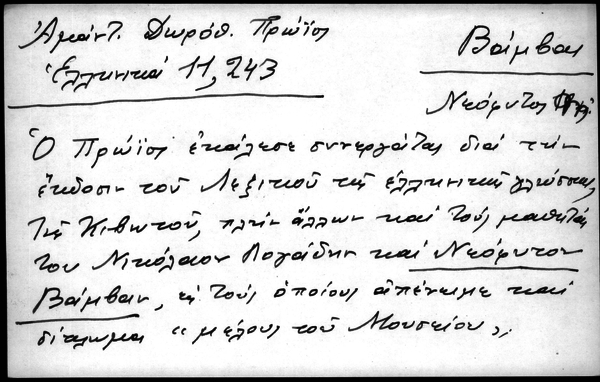 Ἀμάντ. Δωρόθ. Πρώϊος
Ἑλληνικά 11, 243
Βάμβας
Νεόφυτος
Ὁ Πρώϊος ἐκάλεσε συνεργάτας διά τήν
ἔκδοσιν τοῦ Λεξικοῦ τῆς ἑλληνικῆς γλώσσης,
τῆς Κιβωτοῦ, πλήν ἄλλων καί τούς μαθητάς
του Νικόλαον Λογάδην καί Νεόφυτον
Βάμβαν, εἰς τούς ὁποίους ἀπένειμε καί
δίπλωμα « μέλους τοῦ Μουσείου ».